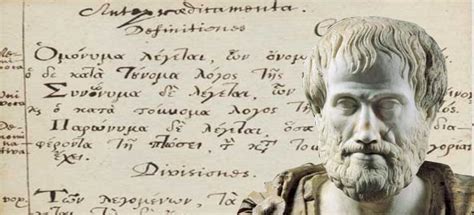 Antepraedicamenta.
Definitiones
Ὁμώνυμα λέγεται, ὧν ὄνομ
δὲ κατὰ τοὔνομα λόγος τῆς
Συνώνυμα δὲ λέγεται, ὧν
ὁ κατὰ τοὔνομα λόγος τῆς
Παρώνυμα δὲ λέγεται,
φέροντα τῇ πτώσει, τ ορίας
ἔχει.
Divisiones.
Τῶν λεγομένων, τὰ